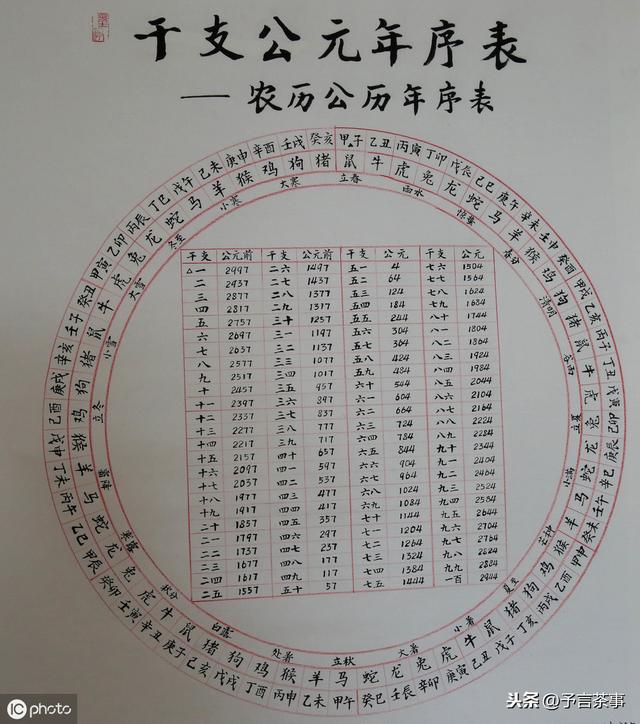 干支公元年序表
——农历公历年序表
甲子 乙丑 丙寅 丁卯 戊辰 己巳 庚午 辛未 壬申 癸酉 甲戌 乙亥 丙子 丁丑 戊寅 己卯 庚辰 辛巳 壬午 癸未 甲申 乙酉 丙戌 丁亥 戊子 己丑 庚寅 辛卯 壬辰 癸巳 甲午 乙未 丙申 丁酉 戊戌 己亥 庚子 辛丑 壬寅 癸卯 甲辰 乙巳 丙午 丁未 戊申 己酉 庚戌 辛亥 壬子 癸丑 甲寅 乙卯 丙辰 丁巳 戊午 己未 庚申 辛酉 壬戌 癸亥
鼠 牛 虎 兔 龙 蛇 马 羊 猴 鸡 狗 猪 鼠 牛 虎 兔 龙 蛇 马 羊 猴 鸡 狗 猪 鼠 牛 虎 兔 龙 蛇 马 羊 猴 鸡 狗 猪 鼠 牛 虎 兔 龙 蛇 马 羊 猴 鸡 狗 猪 鼠 牛 虎 兔 龙 蛇 马 羊 猴 鸡 狗 猪
立春 雨水 惊蛰 春分 清明 谷雨 立夏 小满 芒种 夏至 小暑 大暑 立秋 处暑 白露 秋分 寒露 霜降 立冬 小雪 大雪 冬至 小寒 大寒
干支 公元前 干支 公元前 干支 公元 干支 公元
△一 2997 二六 1497 五一 4 七六 1504
二 2937 二七 1437 五二 64 七七 1564
三 2877 二八 1377 五三 124 七八 1624
四 2817 二九 1317 五四 184 七九 1684
五 2757 三十 1257 五五 244 八十 1744
六 2697 三一 1197 五六 304 八一 1804
七 2637 三二 1137 五七 364 八二 1864
八 2577 三三 1077 五八 424 八三 1924
九 2517 三四 1017 五九 484 八四 1984
十 2457 三五 957 六十 544 八五 2044
十一 2397 三六 897 六一 604 八六 2104
十二 2337 三七 837 六二 664 八七 2164
十三 2277 三八 777 六三 724 八八 2224
十四 2217 三九 717 六四 784 八九 2284
十五 2157 四十 657 六五 844 九十 2344
十六 2097 四一 597 六六 904 九一 2404
十七 2037 四二 537 六七 964 九二 2464
十八 1977 四三 477 六八 1024 九三 2524
十九 1917 四四 417 六九 1084 九四 2584
二十 1857 四五 357 七十 1144 九五 2644
二一 1797 四六 297 七一 1204 九六 2704
二二 1737 四七 237 七二 1264 九七 2764
二三 1677 四八 177 七三 1324 九八 2824
二四 1617 四九 117 七四 1384 九九 2884
二五 1557 五十 57 七五 1444 一百 2944
iC photo
头条 @予言茶事